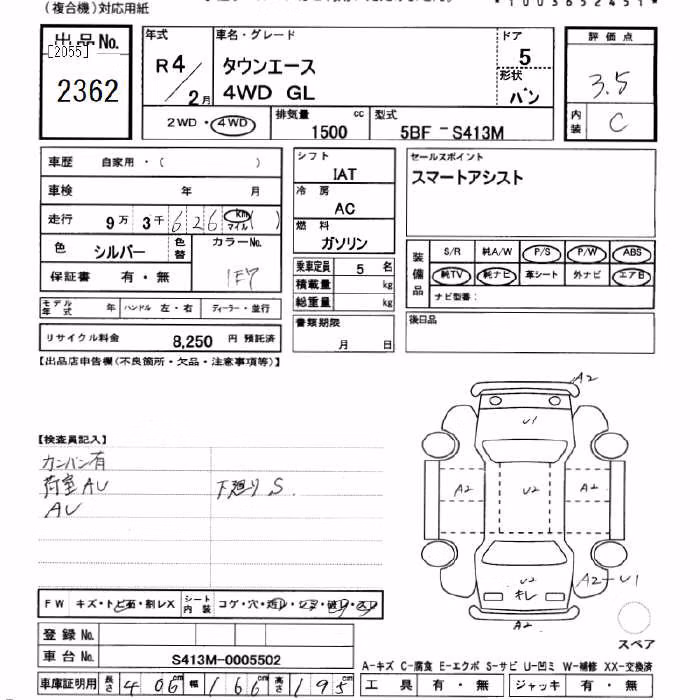 (複合機)対応用紙
*1003652451*
出品No.
[2055]
2362
年式
R4/2月
車名・グレード
タウンエース
4WD GL
ドア
5
形状
バン
評価点
3.5
内装
C
2WD・4WD
排気量 cc
1500
型式
5BF - S413M
車歴 自家用・( )
車検 年 月
走行 9万 3千 626 km マイル ( )
色 シルバー 色替
カラーNo.
1F7
保証書 有・無
モデル年式 年 ハンドル 左・右 ディーラー・並行
リサイクル料金 8,250 円 預託済
シフト
IAT
冷房
AC
燃料
ガソリン
乗車定員 5 名
積載量 kg
総重量 kg
書類期限
月 日
セールスポイント
スマートアシスト
装備品
S/R 純A/W P/S P/W ABS
純TV 純ナビ 革シート 外ナビ エアB
ナビ型番:
後日品
【出品店申告欄(不良箇所・欠品・注意事項等)】
【検査員記入】
カンバン有
荷室AU
AU
下廻りS.
A2
U1
A2
U2
A2
U2
キレ
A2-U1
A2
スペア
FW キズ・トビ石・割レX
シート内装 コゲ・穴・
登録No.
車台No. S413M-0005502
車庫証明用 長さ 406 幅 166 高さ 195
A-キズ C-腐食 E-エクボ S-サビ U-凹ミ W-補修 XX-交換済
工具 有・無 ジャッキ 有・無